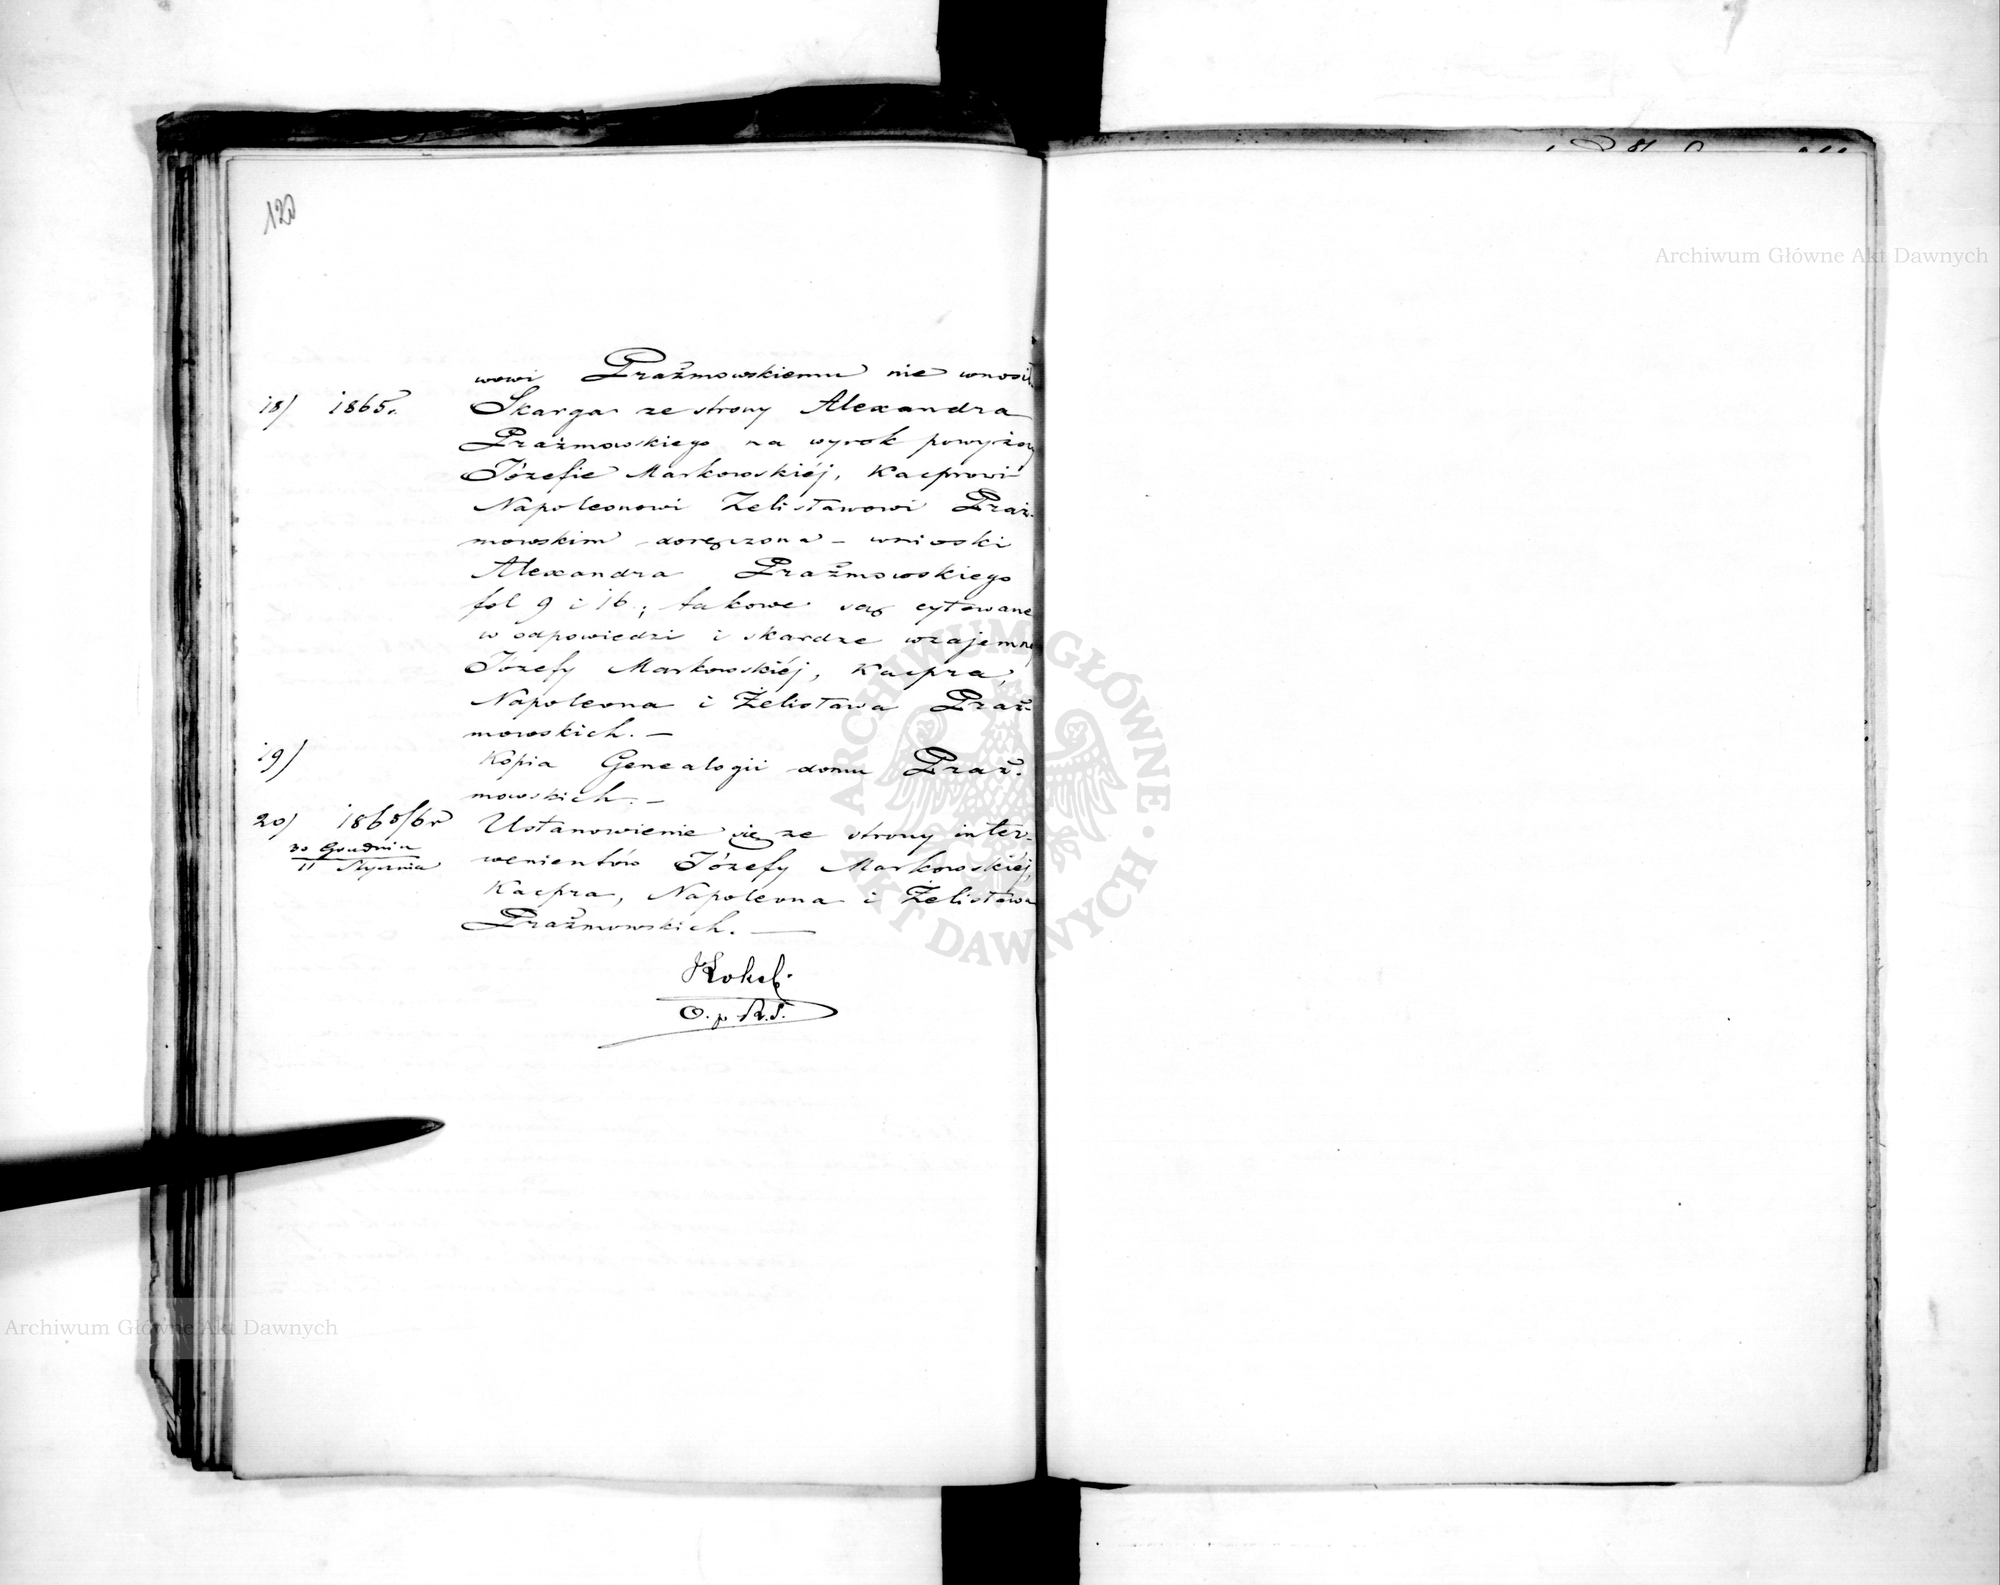 120
wowi Prażmowskiemu nie wnosił.
18) 1865. Skarga ze strony Alexandra
Prażmowskiego na wyrok powyższy
Józefie Markowskiéj, Kacprowi
Napoleonowi Żelisławowi Praż-
mowskim doręczona – wnioski
Alexandra Prażmowskiego
fol 9 i 16; takowe są cytowane
w odpowiedzi i skardze wzajemnej
Józefy Markowskiéj, Kacpra,
Napoleona i Żelisława Praż-
mowskich. –
19) Kopia Genealogii domu Praż-
mowskich. –
20) 1865/6r Ustanowienie się ze strony inter-
30 Grudnia
11 Stycznia
wenientów Józefy Markowskiéj,
Kacpra, Napoleona i Żelisława
Prażmowskich. —
O. p. R. S.
Archiwum Główne Akt Dawnych
Archiwum Główne Akt Dawnych
ARCHIWUM GŁÓWNE AKT DAWNYCH